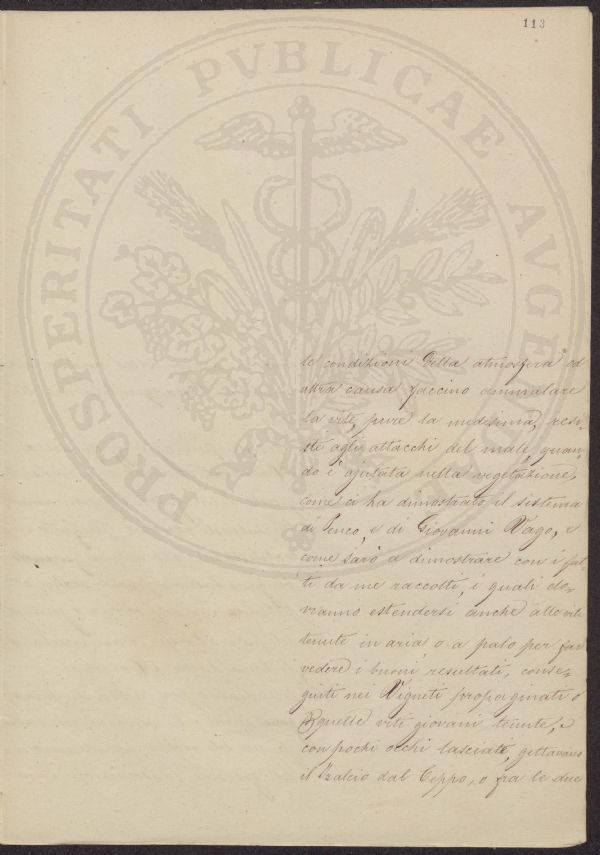 113
PROSPERITATI PVBLICAE AVGENDAE
le condizioni della atmosfera ed
altra causa faccino ammalare
la vite, pure la medesima, resi-
ste agli attacchi del male, quan-
do è ajutata nella vegetazione,
come ci ha dimostrato il sistema
di e di Giovanni Vago, e
come sarò a dimostrare con i fat-
ti da me raccolti, i quali do-
vranno estendersi anche alle viti
tenute in aria o a palo per far
vedere i buoni resultati, conse-
guiti nei Vigneti propaginati o
quelle viti giovani tenute, e
con pochi occhi lasciati, gettavano
il Tralcio dal Ceppo, o fra le due